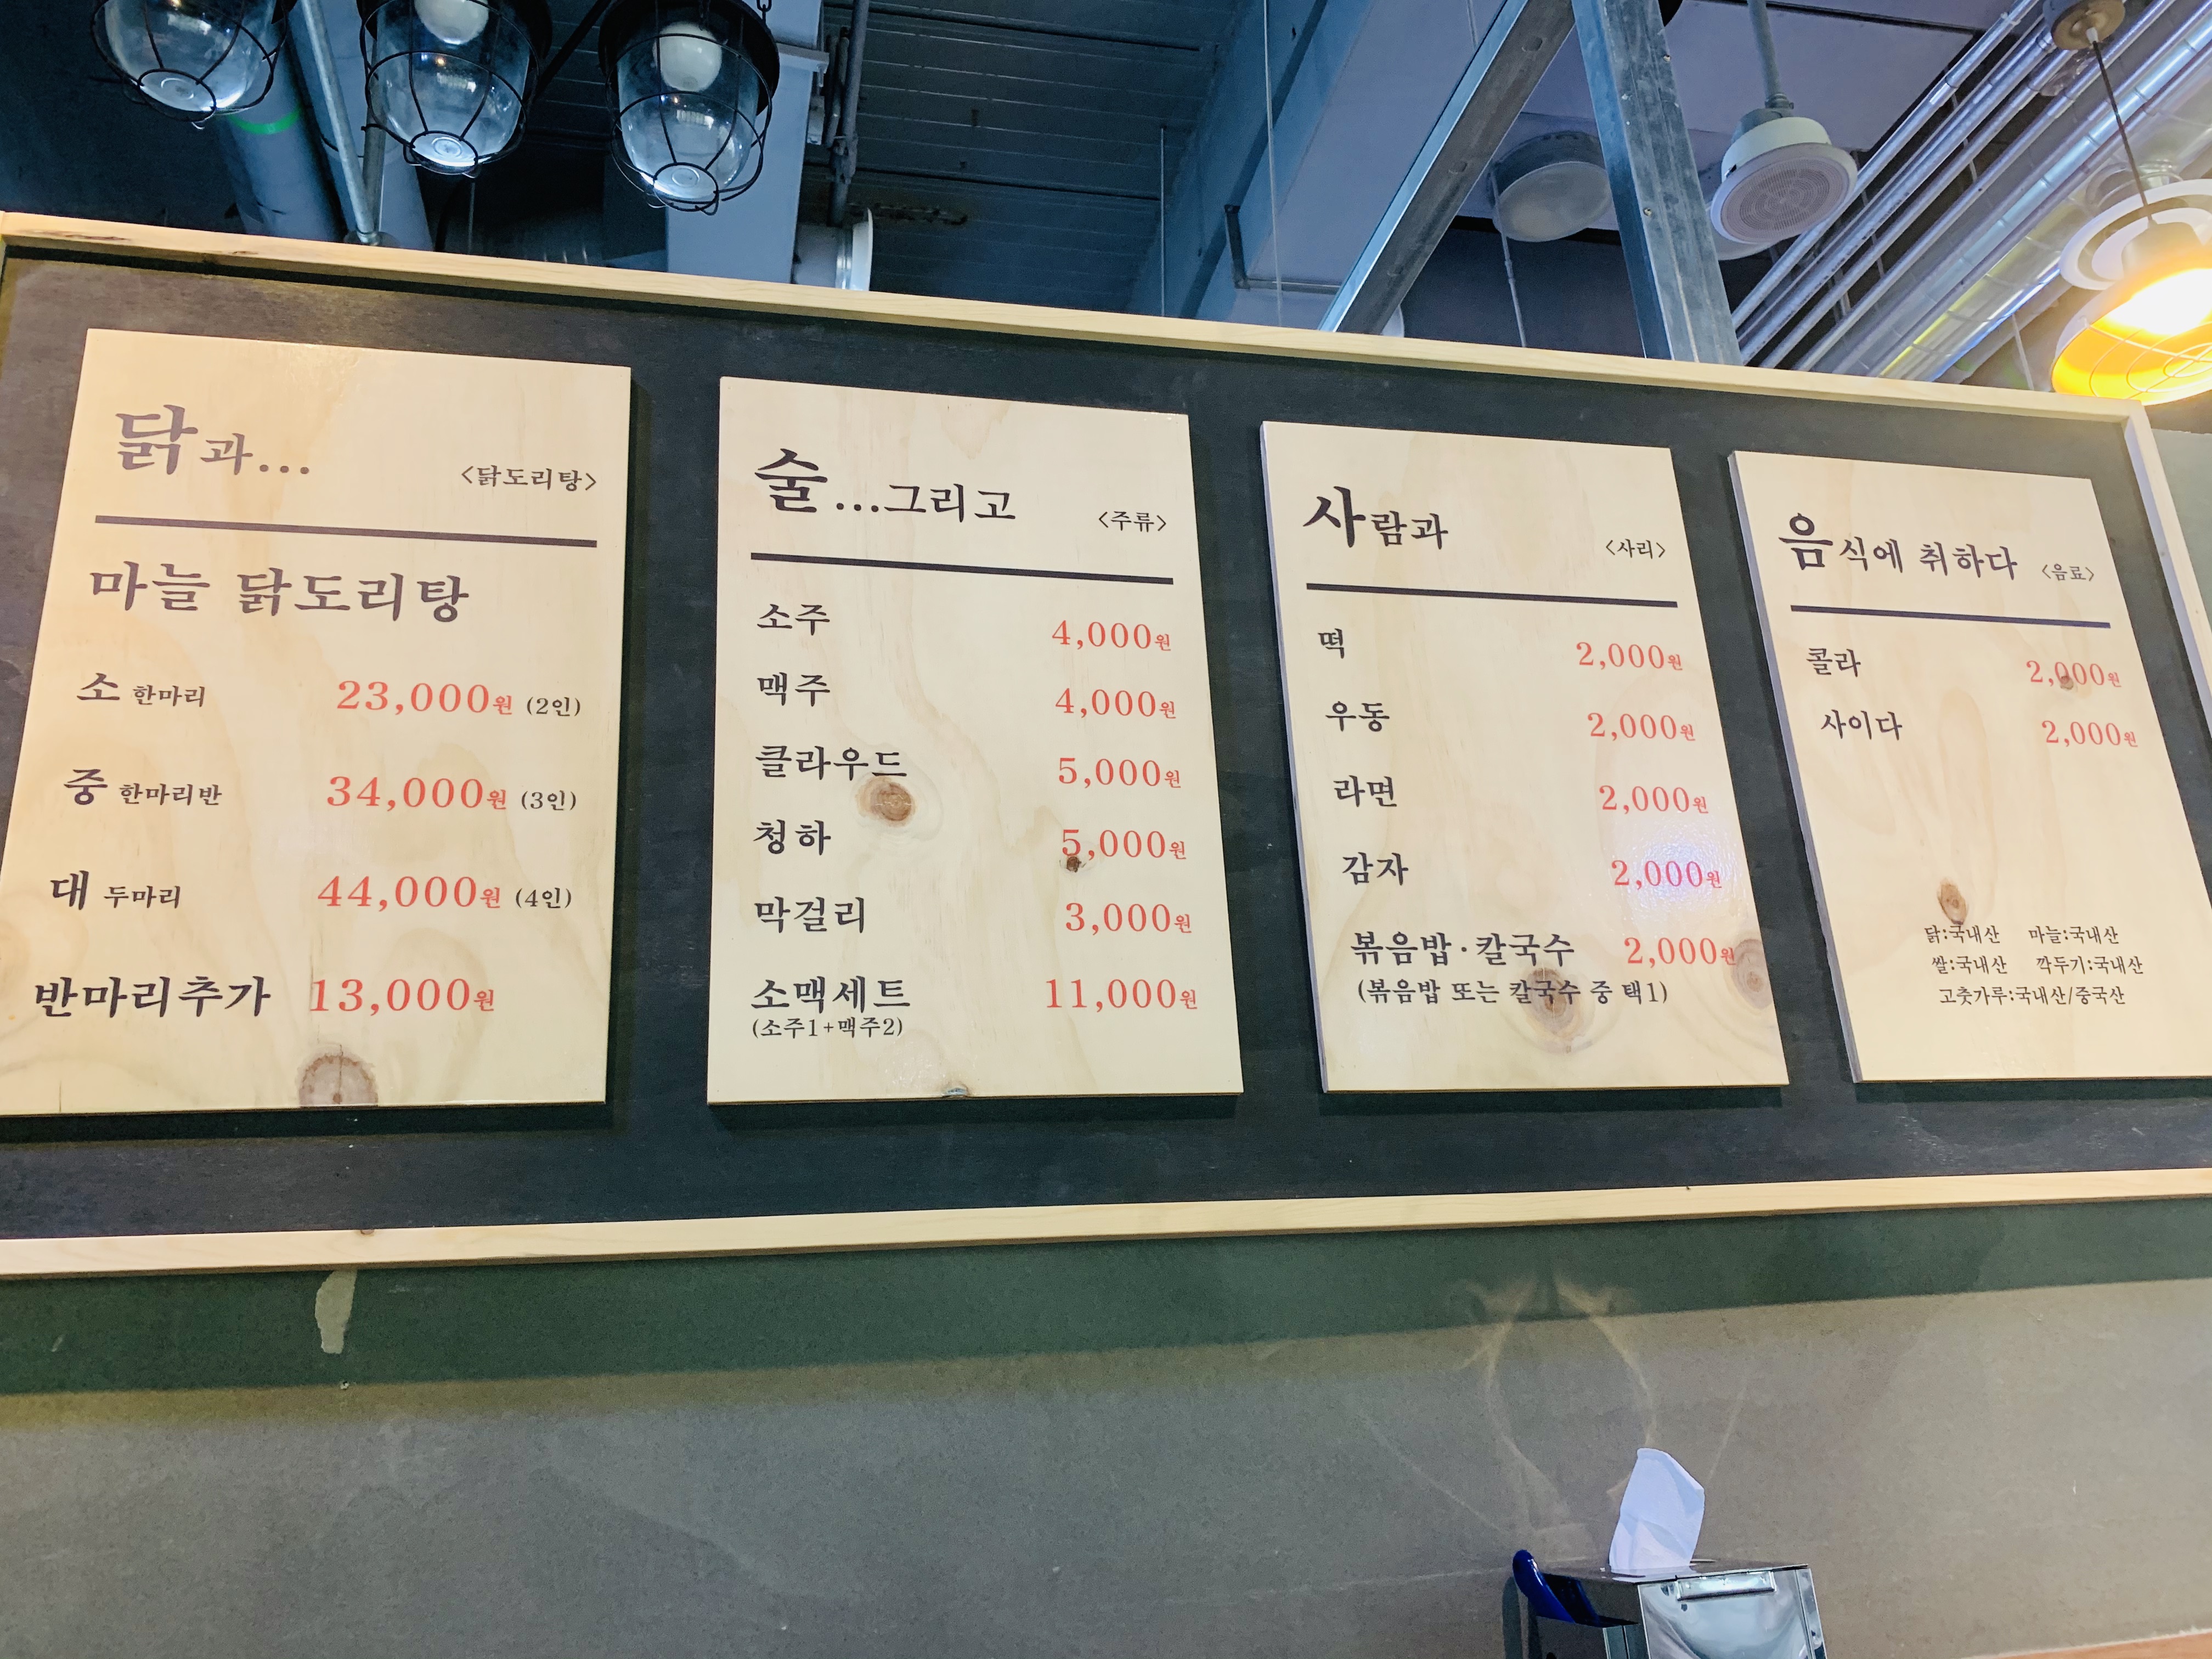 닭과... <닭도리탕>
마늘 닭도리탕
소 한마리 23,000원 (2인)
중 한마리반 34,000원 (3인)
대 두마리 44,000원 (4인)
반마리추가 13,000원
술...그리고 <주류>
소주 4,000원
맥주 4,000원
클라우드 5,000원
청하 5,000원
막걸리 3,000원
소맥세트 11,000원
(소주1+맥주2)
사람과 <사리>
떡 2,000원
우동 2,000원
라면 2,000원
감자 2,000원
볶음밥·칼국수 2,000원
(볶음밥 또는 칼국수 중 택1)
음식에 취하다 <음료>
콜라 2,000원
사이다 2,000원
닭:국내산 마늘:국내산
쌀:국내산 깍두기:국내산
고춧가루:국내산/중국산